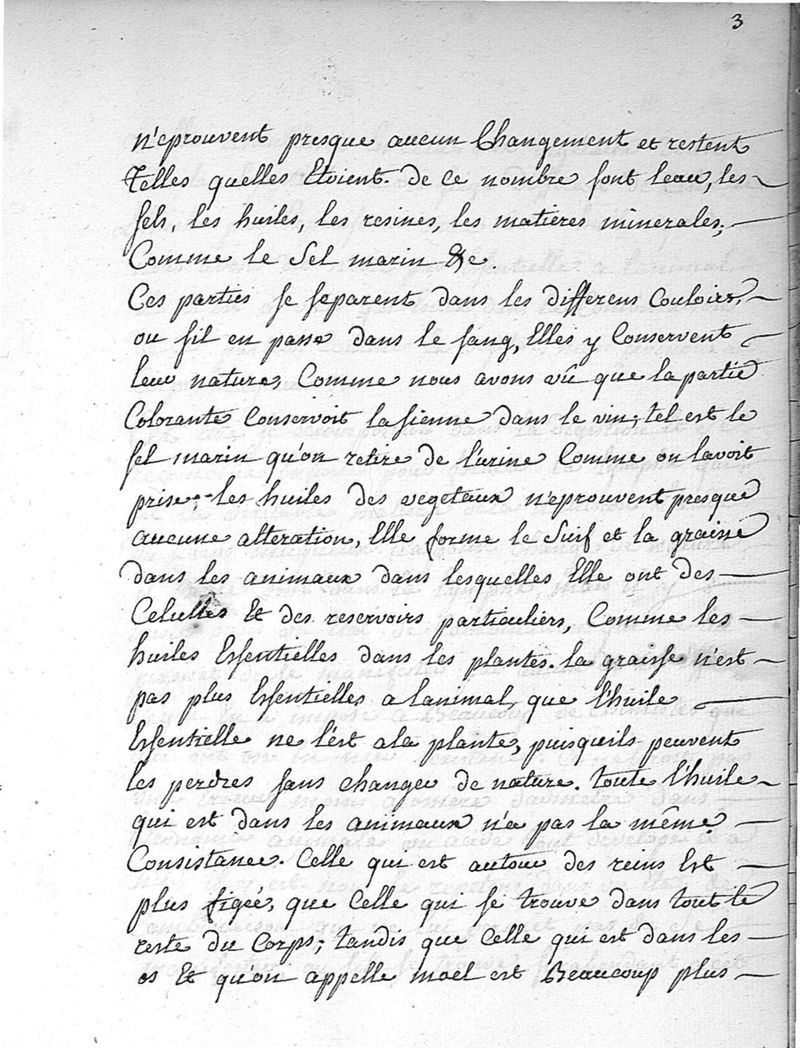 3
n'eprouvent presque aucun Changement et restent
Telles quelles Etoient. de ce nombre sont leau, les
sels, les huiles, les resines, les matieres minerales,
Comme le Sel marin &c
Ces parties se separent dans les differens Couloirs,
ou sil en passe dans le sang, Elles y Conservent
leur nature, Comme nous avons vû que la partie
Colorante Conservoit la sienne dans le vin; tel est le
sel marin qu'on retire de l'urine Comme on lavoit
prise; les huiles des vegetaux n'eprouvent presque
aucune alteration, Elle forme le Suif et la graisse
dans les animaux dans lesquelles Elle ont des
Celulles Et des reservoirs particuliers, Comme les
huiles Essentielles dans les plantes. la graisse n'est
pas plus Essentielles a lanimal, que l'huile
Essentielle ne l'est a la plante, puisquils peuvent
les perdres sans changer de nature. toute l'huile
qui est dans les animaux n'a pas la même
Consistance. Celle qui est autour des reins Est
plus figée, que Celle qui se trouve dans tout le
reste du Corps; tandis que Celle qui est dans les
os Et qu'on appelle moel est Beaucoup plus